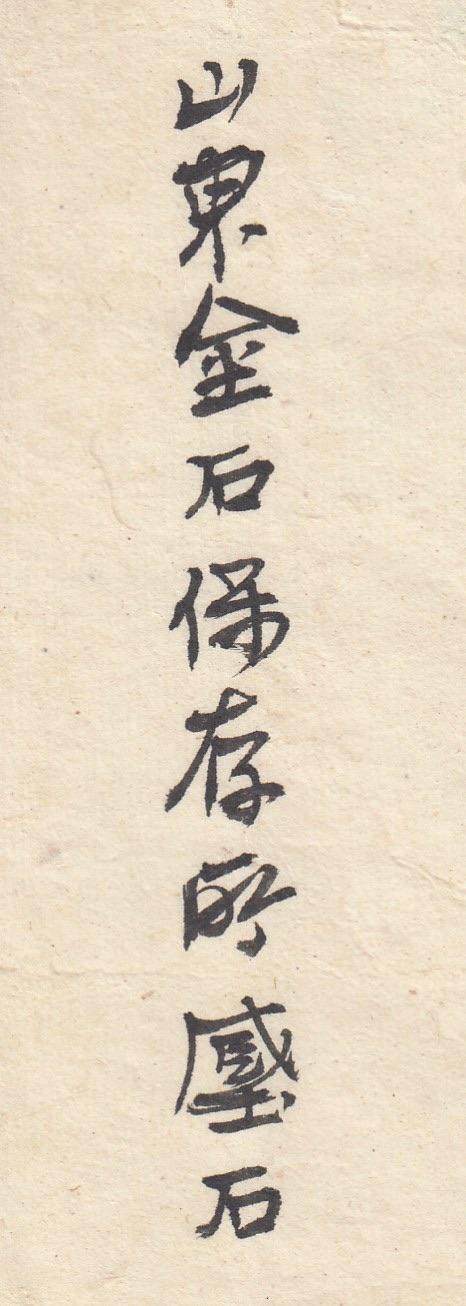 山東金石保存所藏石